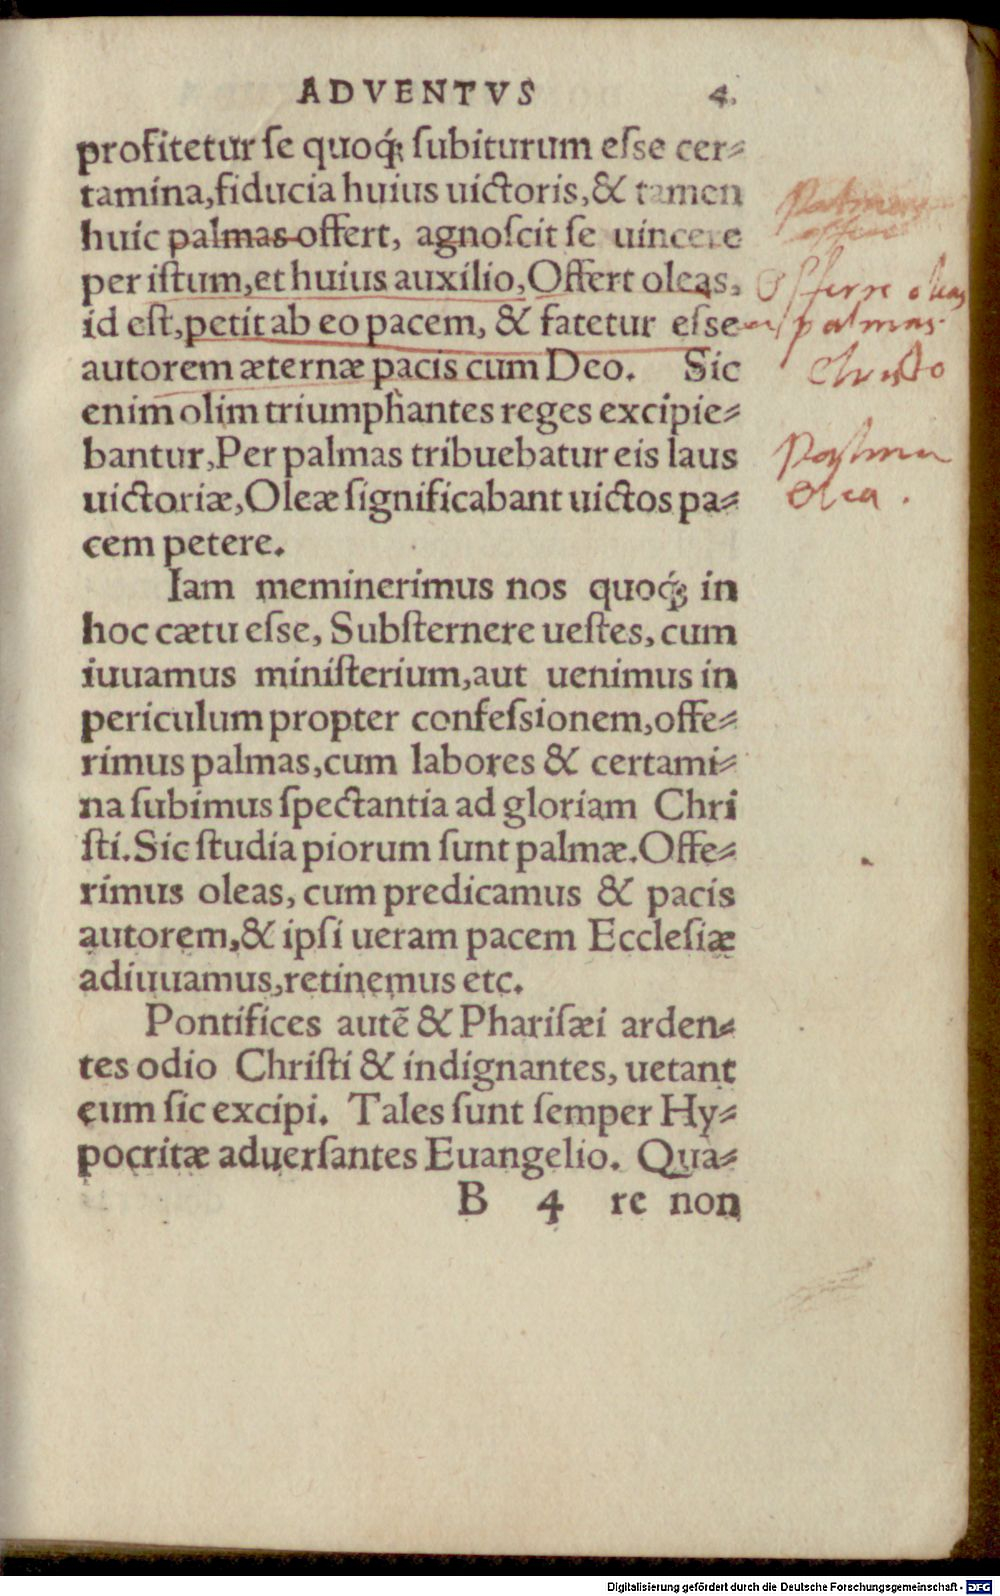 ADVENTVS 4.
profitetur ſe quoq́; ſubiturum eſse cer⸗
tamina,fiducia huius uictoris,& tamen
huic palmas offert, agnoſcit ſe uincere
per iſtum,et huius auxilio,Offert oleas,
id eſt,petit ab eo pacem, & fatetur eſse
autorem æternæ pacis cum Deo. Sic
enim olim triumphantes reges excipie⸗
bantur,Per palmas tribuebatur eis laus
uictoriæ,Oleæ ſignificabant uictos pa⸗
cem petere.
Iam meminerimus nos quoq́; in
hoc cætu eſse, Subſternere ueſtes, cum
iuuamus miniſterium,aut uenimus in
periculum propter confeſsionem,offe⸗
rimus palmas,cum labores & certami⸗
na ſubimus ſpectantia ad gloriam Chri
ſti.Sic ſtudia piorum ſunt palmæ.Offe⸗
rimus oleas, cum predicamus & pacis
autorem,& ipſi ueram pacem Eccleſiæ
adiuuamus,retinemus etc.
Pontifices autē & Phariſæi arden⸗
tes odio Chriſti & indignantes, uetant
eum ſic excipi. Tales ſunt ſemper Hy⸗
pocritæ aduerſantes Euangelio. Qua⸗
B 4 re non
Palmas
offerre
Offerre oleas
palmas
Christo
Palma
Olea.
Digitalisierung gefördert durch die Deutsche Forschungsgemeinschaft - DFG